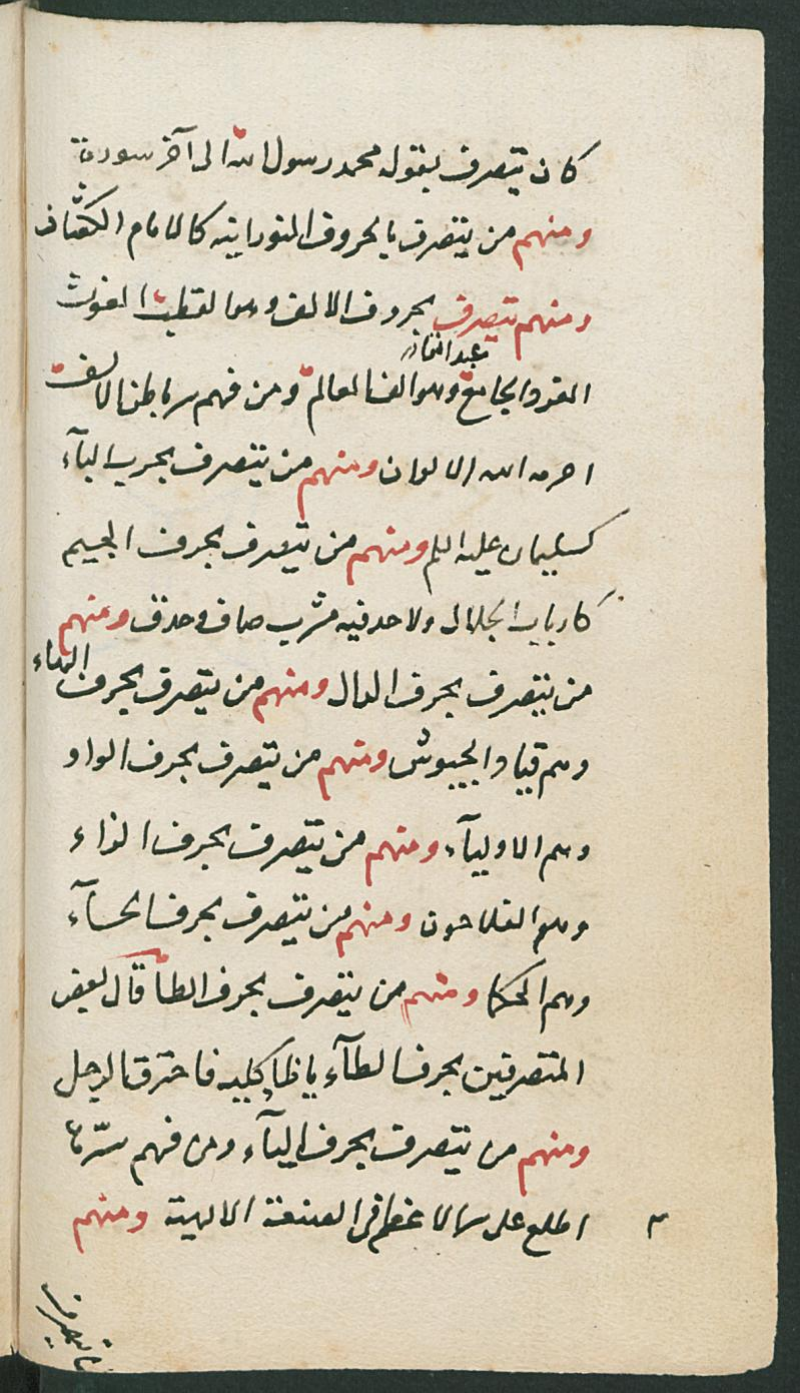 كان يتصرف بقوله محمد رسول الله الى آخر سورة
ومنهم من يتصرف بالحروف النورانية كالامام الكشاف
ومنهم يتصرف بحروف الالف وهو القطب الغوث
عبد القادر
الفرد الجامع وهو الف العالم ومن فهم سر باطن الالف
احرمه الله الالوان ومنهم من يتصرف بحرف الباء
كسليمان عليه السلم ومنهم من يتصرف بحرف الجيم
كارباب الجلال ولاحد فيه مشرب صاف وحدق ومنهم
من يتصرف بحرف الدال ومنهم من يتصرف بحرف الهاء
وهم قياد الجيوش ومنهم من يتصرف بحرف الواو
وهم الاولياء ومنهم من يتصرف بحرف الزاء
وهم الفلاحون ومنهم من يتصرف بحرف الحاء
وهم الحكما ومنهم من يتصرف بحرف الطا قال بعض
المتصرفين بحرف الطاء يا ظا كلبه فاحترق الرجل
ومنهم من يتصرف بحرف الياء ومن فهم سرها
اطلع على سر الاعظم في الصنعة الالهية ومنهم
من يتصرف